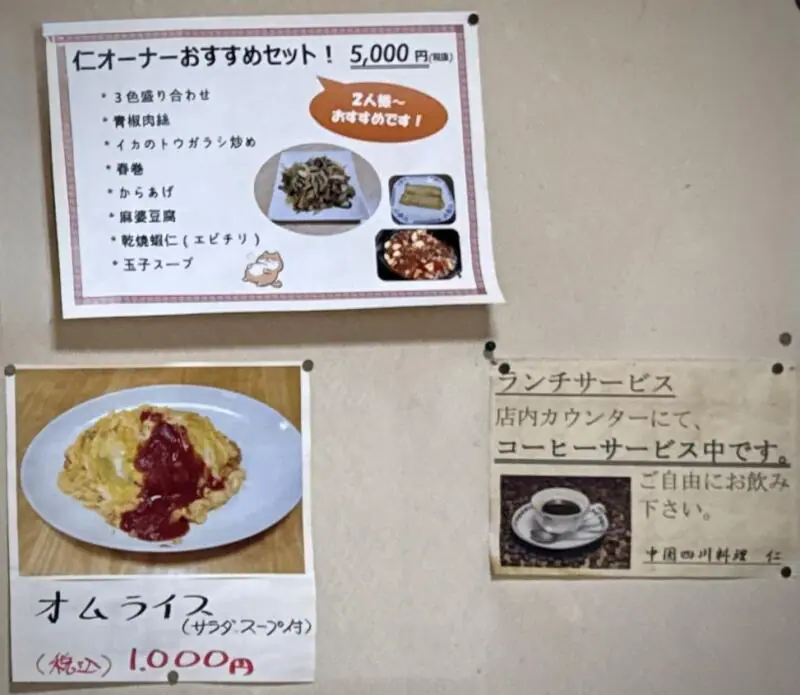 仁オーナーおすすめセット！ 5,000円(税抜)
2人様～
おすすめです！
*３色盛り合わせ
*青椒肉絲
*イカのトウガラシ炒め
*春巻
*からあげ
*麻婆豆腐
*乾焼蝦仁(エビチリ)
*玉子スープ
オムライス
(サラダ、スープ付)
(税込) 1.000円
ランチサービス
店内カウンターにて、
コーヒーサービス中です。
ご自由にお飲み
下さい。
中国四川料理 仁